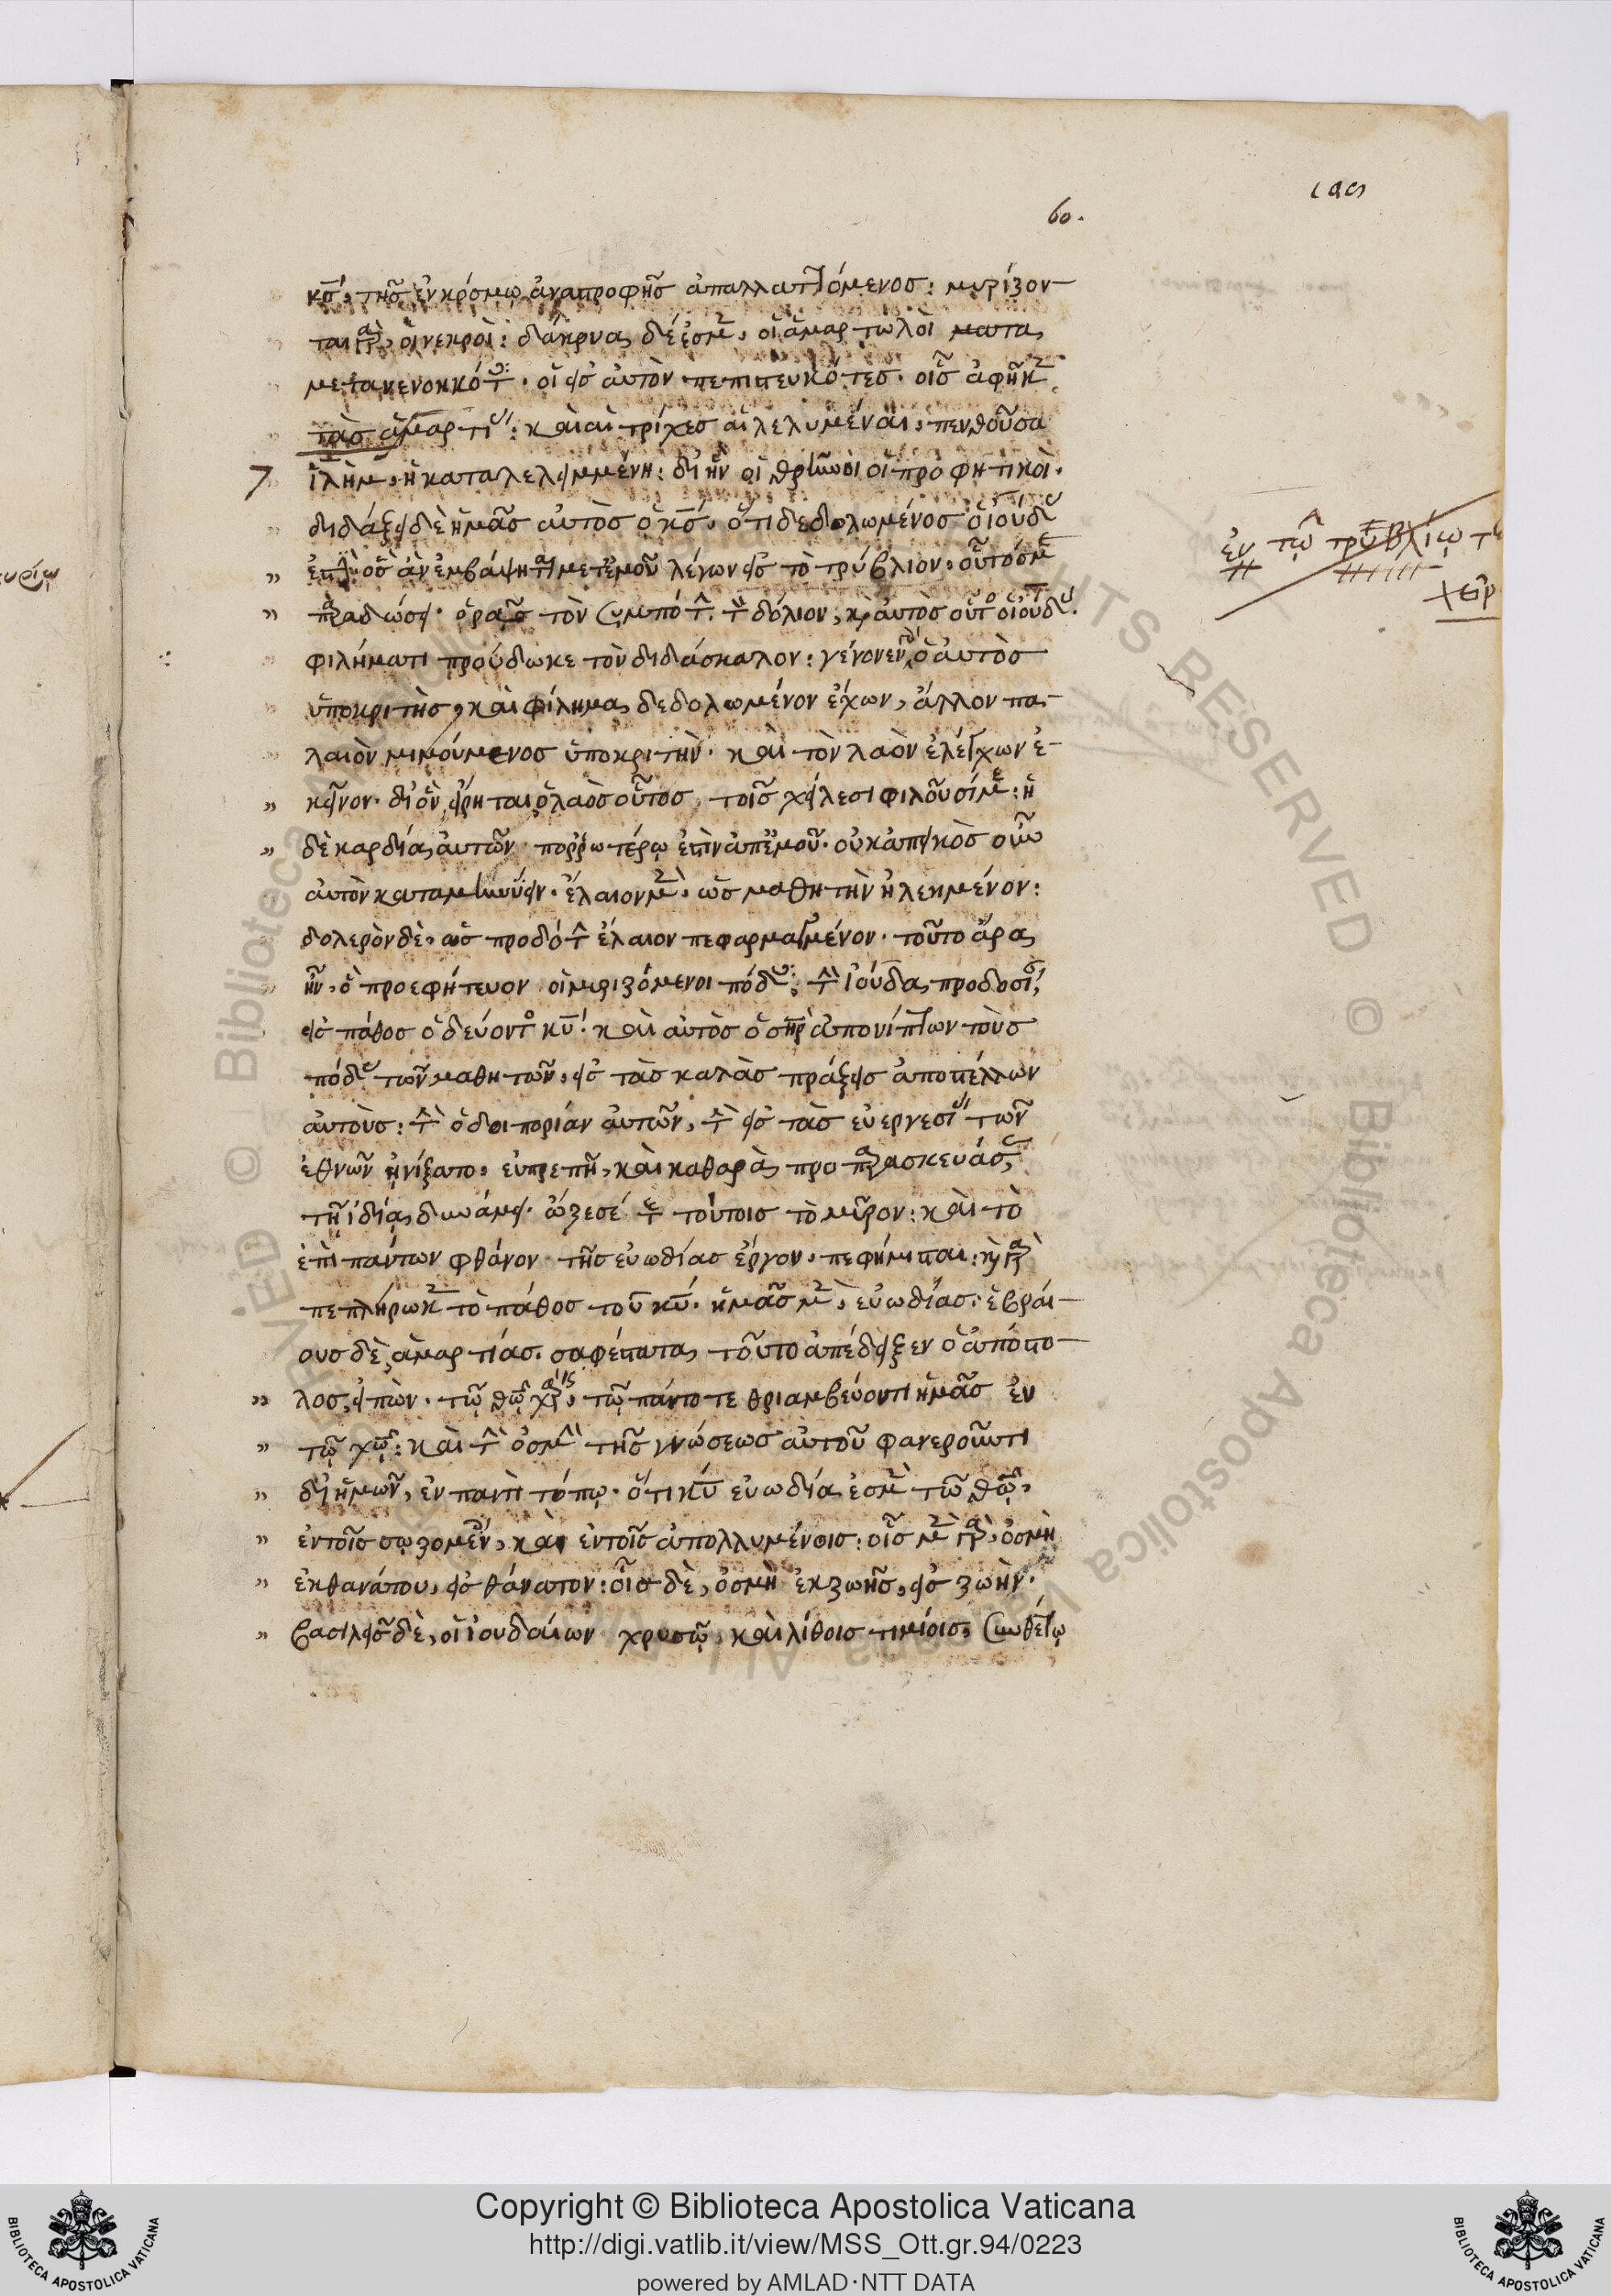 60.
κς̅, τῆς ἐν κόσμῳ ἀναστροφῆς ἀπαλλαττόμενος: μυρίζον-
ται γὰρ, οἱ νεκροί: δάκρυα δέ ἐσμεν, οἱ ἁμαρτωλοὶ μετα
μετανενοηκότες. οἱ εἰς αὐτὸν πεπιστευκότες. οἷς ἀφῆκε
τὰς ἁμαρτίας: καὶ αἱ τρίχες αἱ λελυμέναι, πενθοῦσα
ἱλὴμ, ἡ καταλελειμμένη: δι' ἣν οἱ θρῆνοι οἱ προφητικοί.
διδάξει δὲ ἡμᾶς αὐτὸς ὁ κς̅, ὅτι δεδολωμένος ὁ ἰούδας
ἐστὶ: ὃς ἂν ἐμβάψηται μετ' ἐμοῦ λέγων εἰς τὸ τρύβλιον, οὗτός με
παραδώσει. ὁρᾷς τὸν συμπότην τὸν δόλιον, καὶ αὐτὸς οὗτος ὁ ἰούδας
φιλήματι προύδωκε τὸν διδάσκαλον: γέγονεν γὰρ ὁ αὐτὸς
ὑποκριτὴς, καὶ φίλημα δεδολωμένον ἔχων, ἄλλον πα-
λαιὸν μιμούμενος ὑποκριτήν. καὶ τὸν λαὸν ἐλέγχων ἐ-
κεῖνον. δι' ὃν εἴρηται ὁ λαὸς οὗτος, τοῖς χείλεσι φιλοῦσί με: ἡ
δὲ καρδία αὐτῶν πορρωτέρω ἐστὶν ἀπ' ἐμοῦ. οὐκ ἀπεικὸς οὖν
αὐτὸν καταμηνύειν. ἔλαιον μὲν, ὡς μαθητὴν ἠλεημένον:
δολερὸν δὲ, ὡς προδότην ἔλαιον πεφαρμαγμένον. τοῦτο ἄρα
ἦν, ὃ προεφήτευον οἱ μυριζόμενοι πόδες, τὴν ἰούδα προδοσίαν,
εἰς πάθος ὁδεύοντος κυ̅: καὶ αὐτὸς ὁ σηρ̅ ἀπονίπτων τοὺς
πόδας τῶν μαθητῶν, εἰς τὰς καλὰς πράξεις ἀποστέλλων
αὐτούς: τὴν ὁδοιπορίαν αὐτῶν, τὴν εἰς τὰς εὐεργεσίας τῶν
ἐθνῶν ᾐνίξατο, εὐπρεπῆ, καὶ καθαρὰν προπαρασκευάσας
τῇ ἰδίᾳ δυνάμει. ὤζεσέ τε τούτοις τὸ μῦρον: καὶ τὸ
ἐπὶ πάντων φθάνον τῆς εὐωδίας ἔργον, πεφήμισται: καὶ γὰρ
πεπλήρωκεν τὸ πάθος τοῦ κυ̅. ἡμᾶς μὲν, εὐωδίας: ἑβραί-
ους δὲ, ἁμαρτίας. σαφέστατα τοῦτο ἀπέδειξεν ὁ ἀπόστο-
λος, εἰπών. τῷ θῷ χάρις, τῷ πάντοτε θριαμβεύοντι ἡμᾶς ἐν
τῷ χῷ: καὶ τὴν ὀσμὴν τῆς γνώσεως αὐτοῦ φανεροῦντι
δι' ἡμῶν, ἐν παντὶ τόπῳ. ὅτι κυ̅ εὐωδία ἐσμὲν τῷ θῷ,
ἐν τοῖς σῳζομένοις, καὶ ἐν τοῖς ἀπολλυμένοις: οἷς μὲν γὰρ, ὀσμὴ
ἐκ θανάτου, εἰς θάνατον: οἷς δὲ, ὀσμὴ ἐκ ζωῆς, εἰς ζωήν.
βασιλεῖς δὲ, οἱ ἰουδαίων χρυσῷ, καὶ λίθοις τιμίοις, συνθέτῳ
ἐν τῷ τρυβλίῳ τὴν
χεῖρ
Copyright © Biblioteca Apostolica Vaticana
http://digi.vatlib.it/view/MSS_Ott.gr.94/0223
powered by AMLAD·NTT DATA